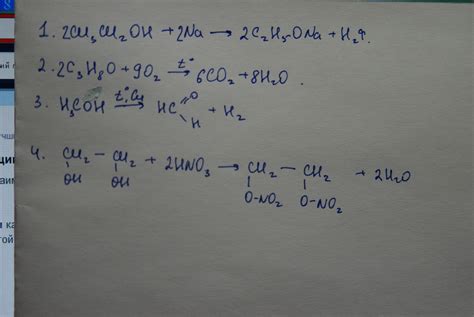 8
1. 2CH₃CH₂OH + 2Na → 2C₂H₅-ONa + H₂↑.
2. 2C₃H₈O + 9O₂ →(t°) 6CO₂ + 8H₂O.
3. H₃COH →(t°, Cu) HC=O + H₂
H
4. CH₂ – CH₂ + 2HNO₃ → CH₂ – CH₂ + 2H₂O
OH OH O-NO₂ O-NO₂